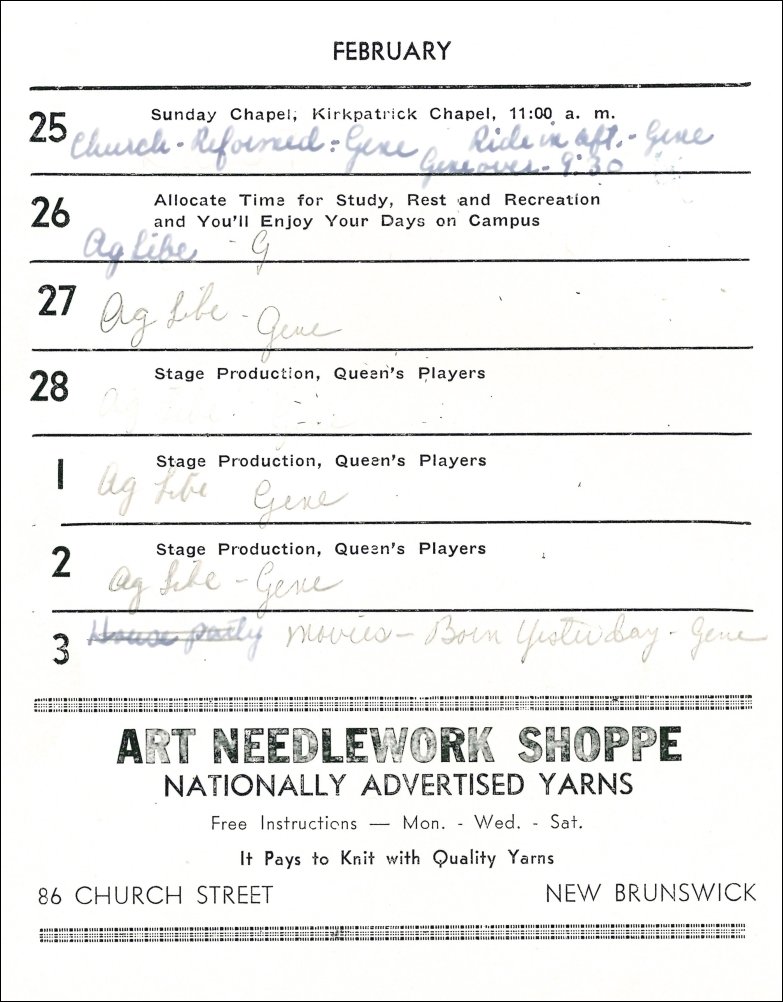 FEBRUARY
25 Sunday Chapel, Kirkpatrick Chapel, 11:00 a. m.
Church - Reformed - Gene Ride in aft. - Gene
Gene over - 9:30
26 Allocate Time for Study, Rest and Recreation
and You'll Enjoy Your Days on Campus
Ag Libe - G
27 Ag Libe - Gene
28 Stage Production, Queen's Players
Ag Libe -
1 Stage Production, Queen's Players
Ag Libe Gene
2 Stage Production, Queen's Players
Ag Libe - Gene
3 House party movies - Born Yesterday - Gene
ART NEEDLEWORK SHOPPE
NATIONALLY ADVERTISED YARNS
Free Instructions — Mon. - Wed. - Sat.
It Pays to Knit with Quality Yarns
86 CHURCH STREET NEW BRUNSWICK